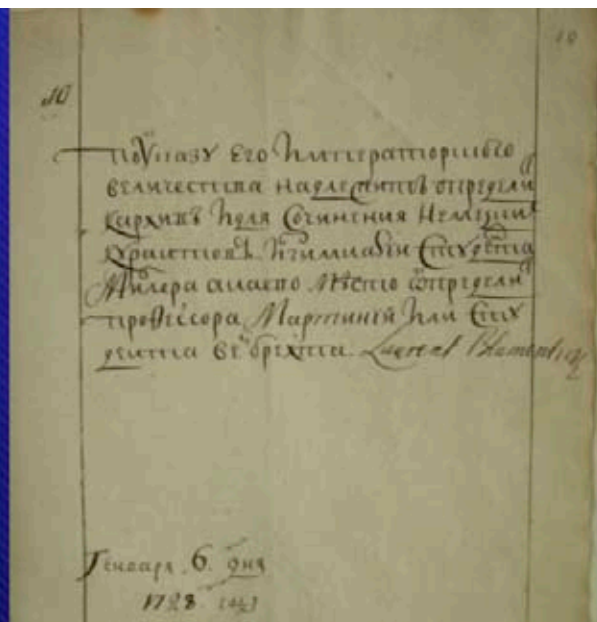 10
10
По указу Его Императорскаго
величества надлежитъ определи
к архивѣ и для сочинения немецки
курантовъ к гимназии студента
Милора а на ево место определи
профессора Мартиний или сту
дента
Laurent Blumentrost
Генваря 6 дня
1728